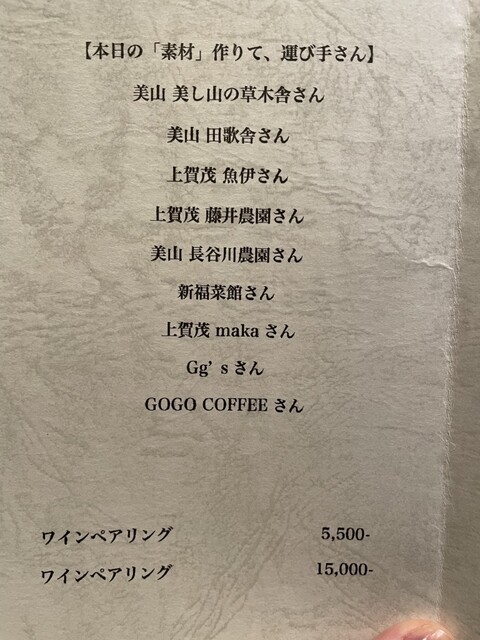 【本日の「素材」作りて、運び手さん】
美山 美し山の草木舎さん
美山 田歌舎さん
上賀茂 魚伊さん
上賀茂 藤井農園さん
美山 長谷川農園さん
新福菜館さん
上賀茂 maka さん
Gg’s さん
GOGO COFFEE さん
ワインペアリング 5,500-
ワインペアリング 15,000-